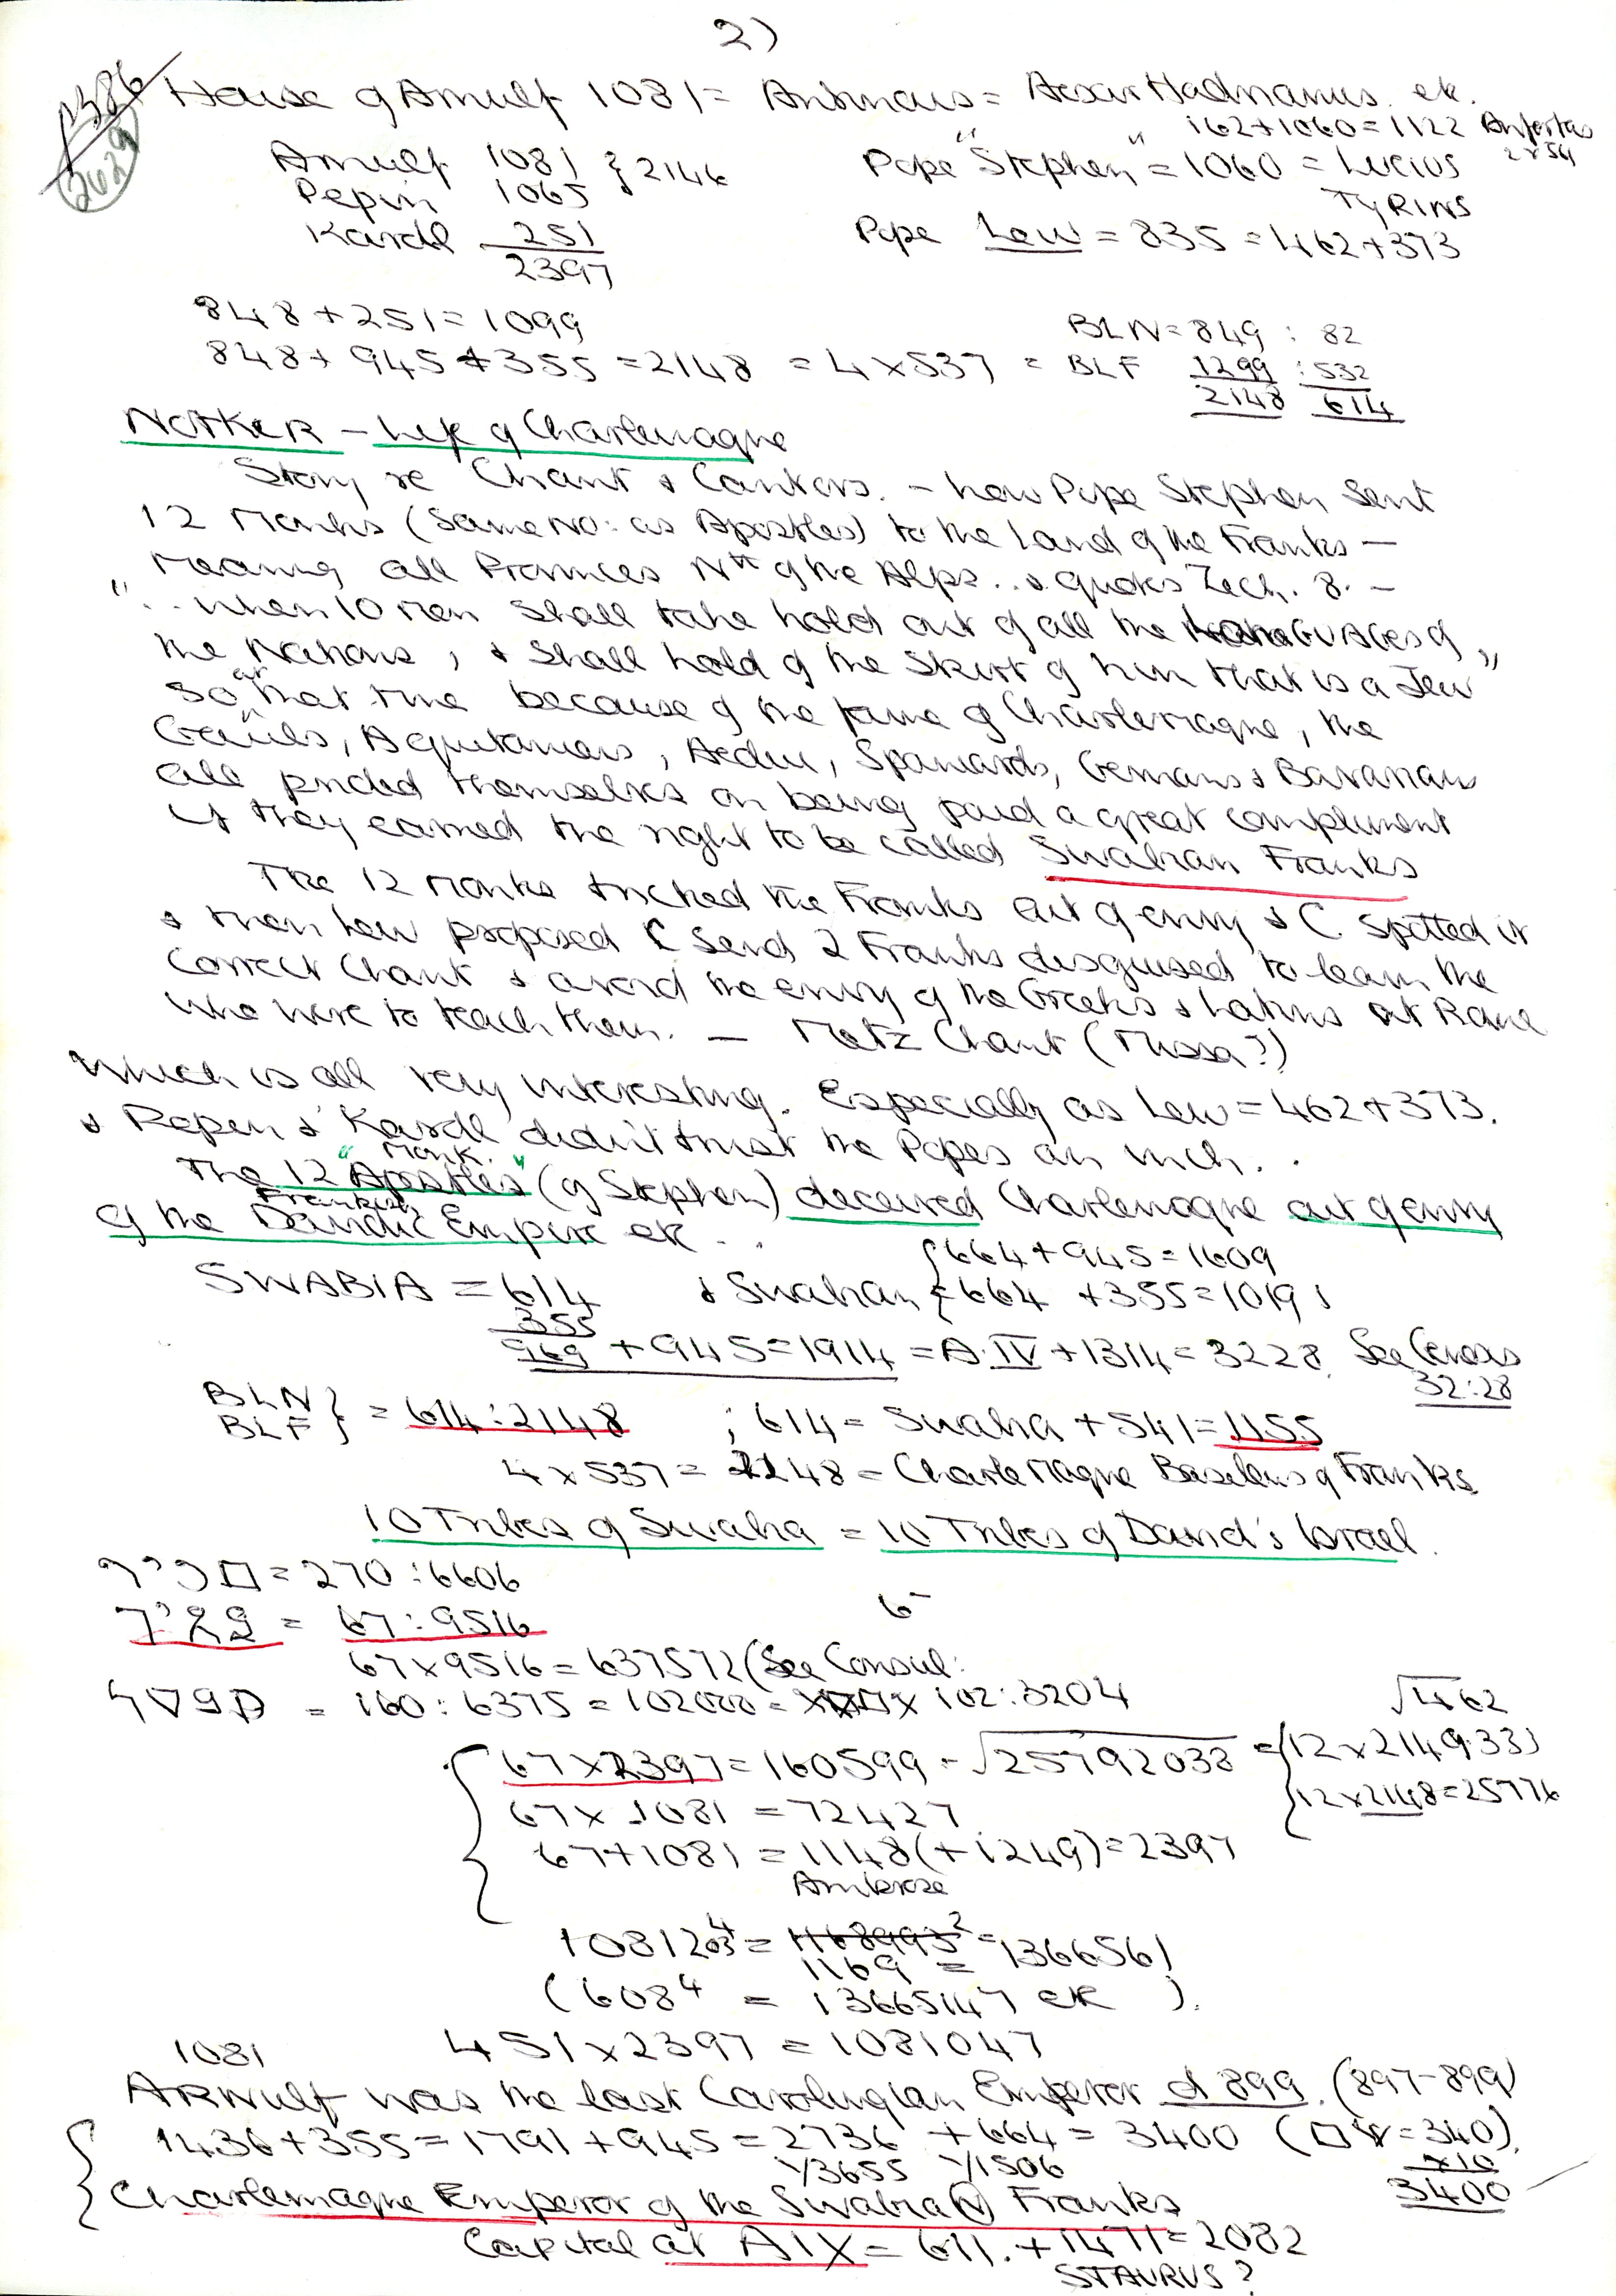 2)
1386
2629
House of Arnulf 1081 = Antonaus = Aesar Hadrianus. etc.
162+1060=1122 Anfortas
2x561
Arnulf 1081 } 2146
Pepin 1065
Karol 251
2397
Pope "Stephen" = 1060 = Lucius
TYRINS
Pope Leo = 835 = 462+373
848 + 251 = 1099
848 + 945 + 355 = 2148 = 4 x 537 = BLF
BLN = 849 : 82
1299 : 532
2148 614
NOTKER – Life of Charlemagne
Story re Chant & Cantors. – how Pope Stephen sent
12 Monks (same no: as Apostles) to the Land of the Franks –
meaning all Provinces Nth of the Alps.. & quotes Zech. 8. –
".. when 10 men shall take hold out of all the LANGUAGES of
the Nations, & shall hold of the skirt of him that is a Jew"
so at that time because of the fame of Charlemagne, the
Gauls, Aquitanians, Aedui, Spaniards, Germans & Bavarians
all prided themselves on being paid a great compliment
if they earned the right to be called Swabian Franks
The 12 Monks tricked the Franks out of envy & C. spotted it
& then Leo proposed C send 2 Franks disguised to learn the
correct Chant & avoid the envy of the Greeks & Latins at Rome
who were to teach them. — Metz Chant (Missa?)
Which is all very interesting. Especially as Leo = 462+373.
& Pepin & Karol didn't trust the Popes an inch. .
The 12 "Apostles" Monk. (of Stephen) deceived Charlemagne out of envy
of the Davidic Frankish Empire etc . .
SWABIA = 614
355
969 + 945 = 1914 = A.IV + 1314 = 3228. See Genesis
32:28
& Swabian { 664 + 945 = 1609
= 664 + 355 = 1019 !
BLN } = 614 : 2148 ; 614 = Swabia + 541 = 1155
BLF }
4 x 537 = 2148 = Charlemagne Basileus of Franks
10 Tribes of Swabia = 10 Tribes of David's Israel.
= 270 : 6606
= 67 : 9516
67 x 9516 = 637572 (See Consul:
= 160 : 6375 = 102000 = 102 : 3204
√462
{ 67 x 2397 = 160599 - √25792038 = { 12 x 2149.33)
12 x 2148 = 25776
67 x 1081 = 72427
67 + 1081 = 1148 (+ 1249) = 2397
Ambrose
1081203⁴ = 1168993² =
1169 = 1366561
(608⁴ = 13665147 etc ).
451 x 2397 = 1081047
1081
ARNULF was the last Carolingian Emperor d 899. (897-899)
{ 1436 + 355 = 1791 + 945 = 2736 + 664 = 3400 ( = 340).
√3655 √1506
x10
3400
Charlemagne Emperor of the Swabia(N) Franks
Capital at AIX = 611. + 1471 = 2082
STAURUS ?